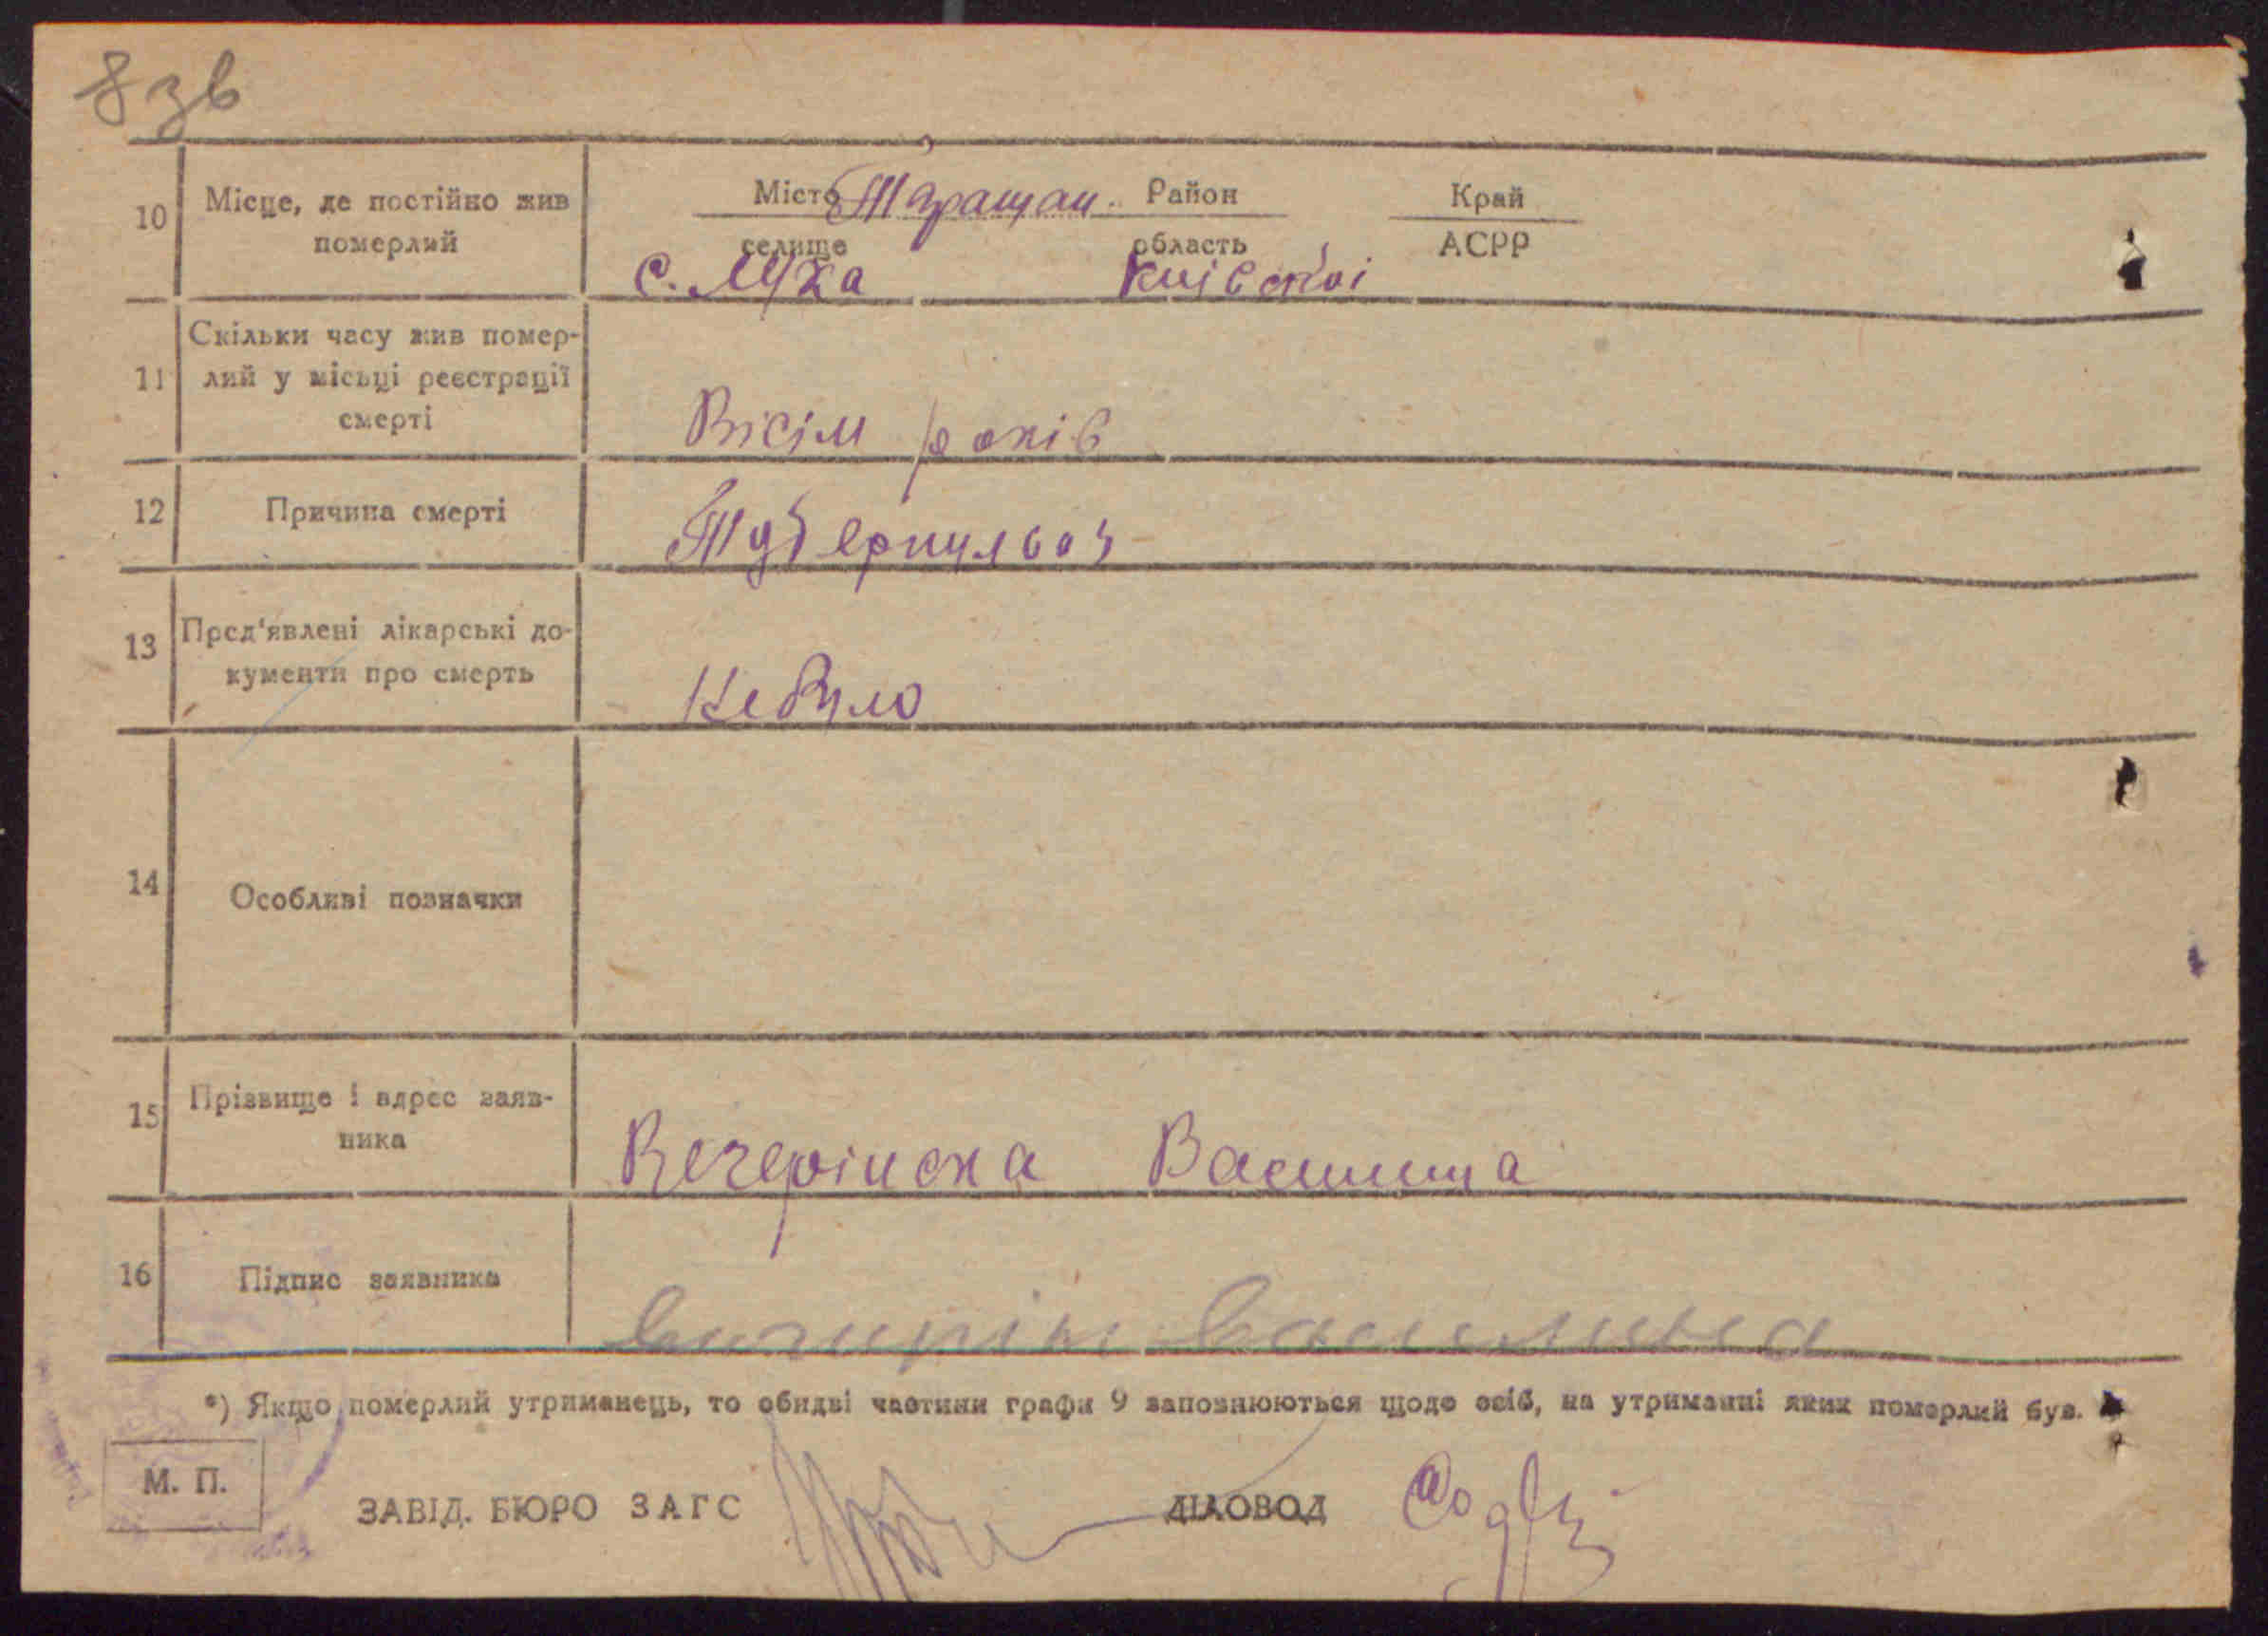 8 зв
10
Місце, де постійно жив
померлий
Місто Таращан. Район
Край
селище
область
АСРР
с. Лука
Київської
11
Скільки часу жив помер-
лий у місьці реєстрації
смерті
Вісім років
12
Причина смерті
Туберкульоз
13
Пред'явлені лікарські до-
кументи про смерть
Небуло
14
Особливі позначки
15
Прізвище і адрес заяв-
ника
Вечерінска Василина
16
Підпис заявника
Вичирін Василина
*) Якщо померлий утриманець, то обидві частини графи 9 заповнюються щодо осіб, на утриманні яких померлий був.
М. П.
ЗАВІД. БЮРО ЗАГС
ДІЛОВОД